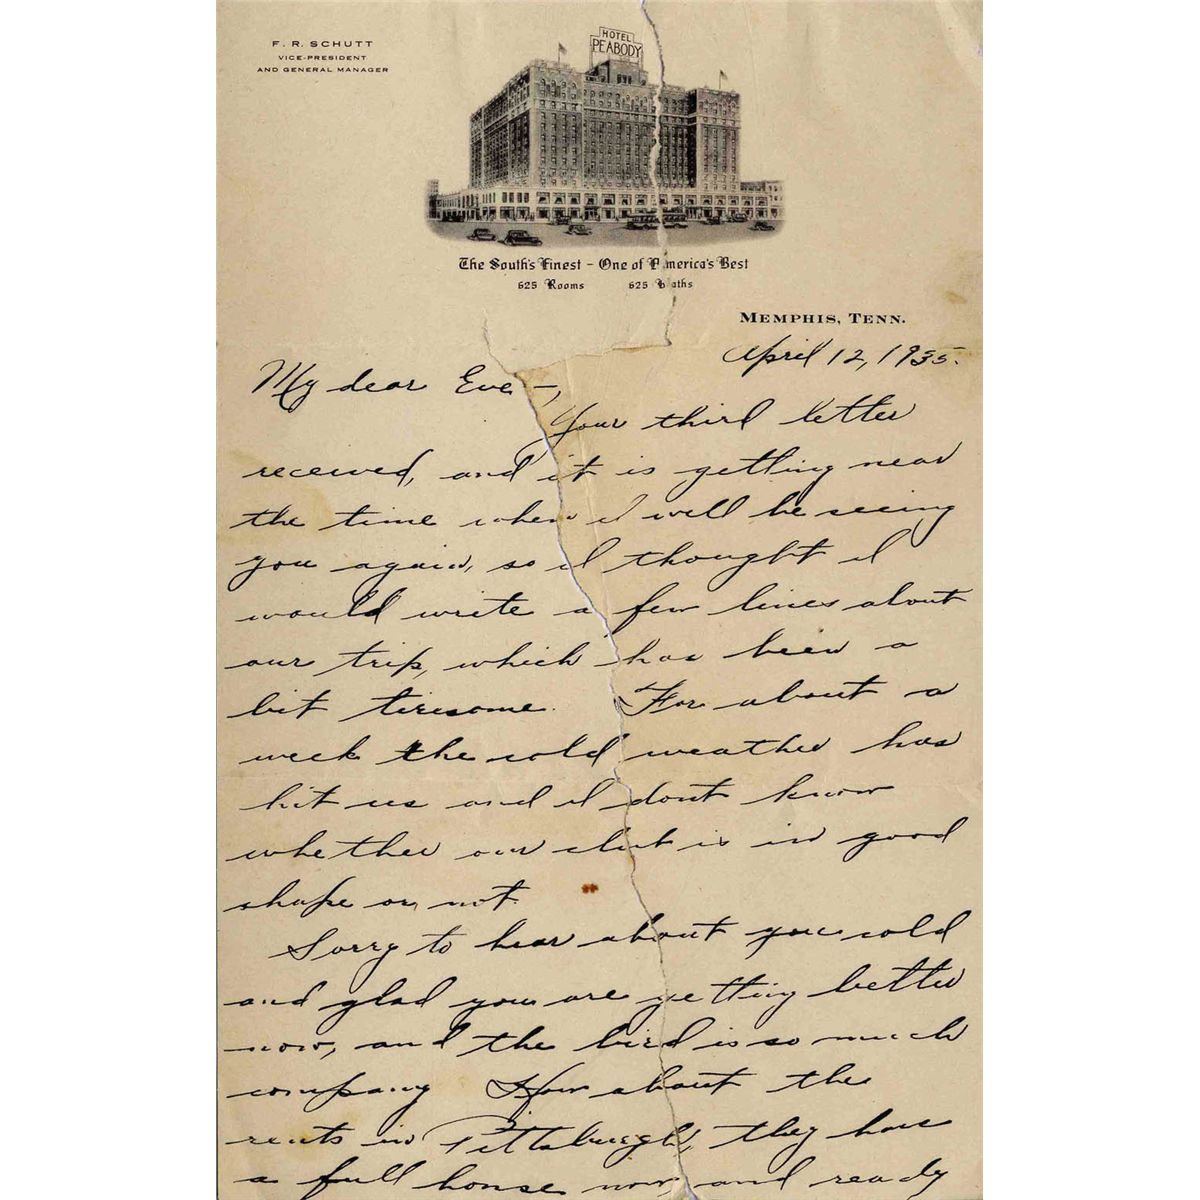 F. R. SCHUTT
VICE-PRESIDENT
AND GENERAL MANAGER
HOTEL
PEABODY
The South's Finest - One of America's Best
625 Rooms 625 Baths
MEMPHIS, TENN.
April 12, 1935.
My dear Eve -,
Your third letter
received, and it is getting near
the time when I will be seeing
you again, so I thought I
would write a few lines about
our trip, which has been a
bit tiresome. For about a
week the cold weather has
hit us and I dont know
whether our club is in good
shape or not.
Sorry to hear about you cold
and glad you are getting better
now, and the bird is so much
company How about the
in Pittsburgh, they have
a full house now and ready